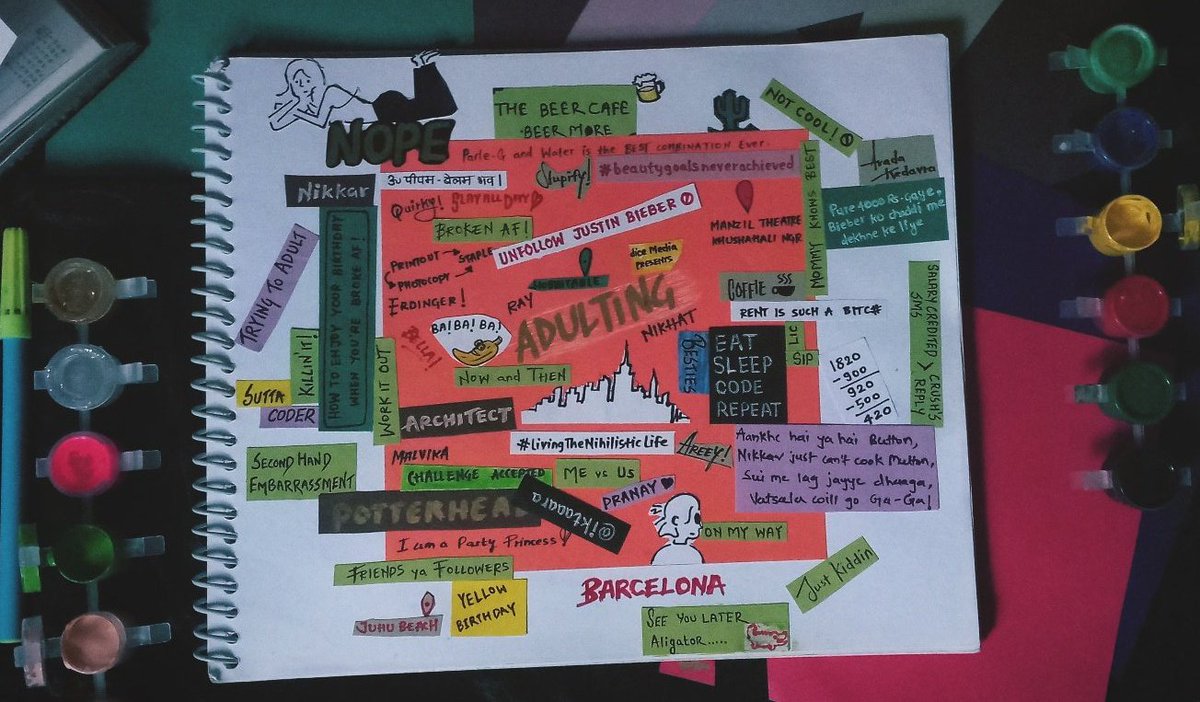 THE BEER CAFE
BEER MORE
NOT COOL!
NOPE
Parle-G and Water is the BEST COMBINATION Ever.
Avada
Kedavra
Nikkar
ॐ पीयम - बेलम भव।
Stupify!
#beautygoalsneverachieved
MOMMY KNOWS BEST
Quirky!
SLAY ALL DAY
UNFOLLOW JUSTIN BIEBER
MANZIL THEATRE
KHUSHAHALI NGR
Pure 4000 Rs. gaye,
Bieber ko chaddi me
dekhne ke liye
BROKEN AF!
TRYING TO ADULT
HOW TO ENJOY YOUR BIRTHDAY
WHEN YOU'RE BROKE AF!
PRINTOUT → STAPLE
PHOTOCOPY
dice Media
PRESENTS
COFFIE
SALARY CREDITED > CRUSH'S
SMS REPLY
ERDINGER!
RAY
ADULTING
NIKHAT
RENT IS SUCH A BITC#
BELLA!
BA! BA! BA!
KILLIN IT!
WORK IT OUT
BESTIES
EAT
SLEEP
CODE
REPEAT
LIC
SIP
1820
-900
920
-500
420
Now and Then
SUTTA
CODER
ARCHITECT
#LivingTheNihilisticLife
AREEY!
Aankhe hai ya hai Button,
Nikkar just can't cook Mutton,
Sui me lag jayye dhaaga,
Vatsala will go Ga-Ga!
SECOND HAND
EMBARRASSMENT
MALVIKA
CHALLENGE ACCEPTED
ME vs US
PRANAY
POTTERHEAD
@iktaaara
ON MY WAY
I am a Party Princess!
FRIENDS ya FOLLOWERS
Just Kiddin
BARCELONA
YELLOW
BIRTHDAY
JUHU BEACH
SEE YOU LATER
Aligator.....